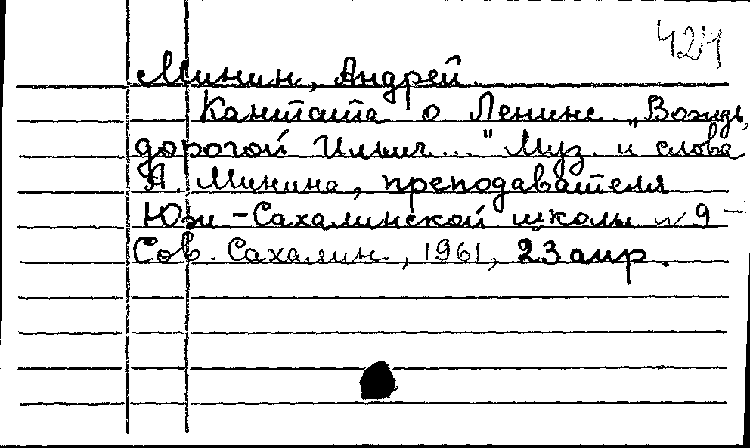 424
Минин, Андрей.
Кантата о Ленине „Вождь,
дорогой Ильич..." Муз. и слова
А. Минина, преподавателя
Юж-Сахалинской школы №9 -
Сов. Сахалин., 1961, 23 апр.